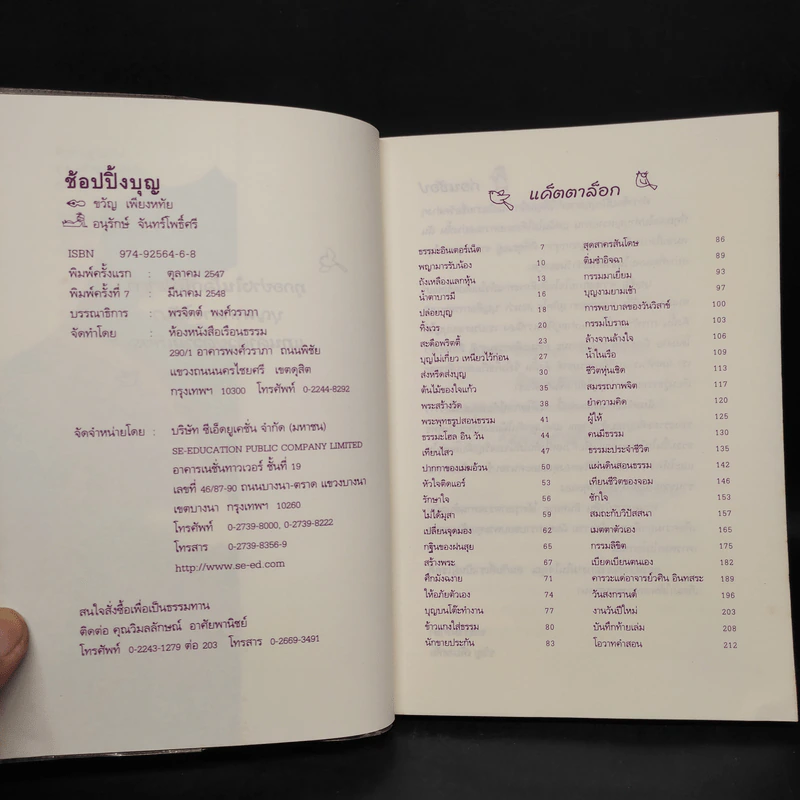 ช้อปปิ้งบุญ
ขวัญ เพียงหทัย
อนุรักษ์ จันทร์โพธิ์ศรี
ISBN 974-92564-6-8
พิมพ์ครั้งแรก : ตุลาคม 2547
พิมพ์ครั้งที่ 7 : มีนาคม 2548
บรรณาธิการ : พรจิตต์ พงศ์วราภา
จัดทำโดย : ห้องหนังสือเรือนธรรม
290/1 อาคารพงศ์วราภา ถนนพิชัย
แขวงถนนนครไชยศรี เขตดุสิต
กรุงเทพฯ 10300 โทรศัพท์ 0-2244-8292
จัดจำหน่ายโดย : บริษัท ซีเอ็ดยูเคชั่น จำกัด (มหาชน)
SE-EDUCATION PUBLIC COMPANY LIMITED
อาคารเนชั่นทาวเวอร์ ชั้นที่ 19
เลขที่ 46/87-90 ถนนบางนา-ตราด แขวงบางนา
เขตบางนา กรุงเทพฯ 10260
โทรศัพท์ 0-2739-8000, 0-2739-8222
โทรสาร 0-2739-8356-9
http://www.se-ed.com
สนใจสั่งซื้อเพื่อเป็นธรรมทาน
ติดต่อ คุณวิมลลักษณ์ อาศัยพานิชย์
โทรศัพท์ 0-2243-1279 ต่อ 203 โทรสาร 0-2669-3491
แค็ตตาล็อก
ธรรมะอินเตอร์เน็ต 7
พญามารรับน้อง 10
ถังเหลืองแลกหุ้น 13
น้ำตาบารมี 16
ปล่อยบุญ 18
ทิ้งเวร 20
สะดือพริตตี้ 23
บุญไม่เกี่ยว เหนียวไว้ก่อน 27
ส่งหรีดส่งบุญ 30
ต้นไม้ของใจแก้ว 35
พระสร้างวัด 38
พระพุทธรูปสอนธรรม 41
ธรรมะโฮล อิน วัน 44
เทียนไสว 47
ปากกาของเมฆอ้วน 50
หัวใจติดแอร์ 53
รักษาใจ 56
ไม่ได้มุสา 59
เปลี่ยนจุดมอง 62
กฐินของฝนสุย 65
สร้างพระ 67
ศึกมังฉงาย 71
ให้อภัยตัวเอง 74
บุญบนโต๊ะทำงาน 77
ข้าวแกงใส่ธรรม 80
นักขายประกัน 83
สุดสาครสันโดษ 86
ติ่มซำอิจฉา 89
กรรมมาเยี่ยม 93
บุญงามยามเช้า 97
การพยาบาลของวันวิสาข์ 100
กรรมโบราณ 103
ล้างจานล้างใจ 106
น้ำในเรือ 109
ชีวิตหุ่นเชิด 113
สมรรถภาพจิต 117
ยำความคิด 120
ผู้ให้ 125
คนมีธรรม 130
ธรรมะประจำชีวิต 135
แผ่นดินสอนธรรม 142
เทียนชีวิตของจอม 146
ซักใจ 153
สมถะกับวิปัสสนา 157
เมตตาตัวเอง 165
กรรมลิขิต 175
เบียดเบียนตนเอง 182
คารวะแด่อาจารย์วศิน อินทสระ 189
วันสงกรานต์ 196
งานวันปีใหม่ 203
บันทึกท้ายเล่ม 208
โอวาทคำสอน 212